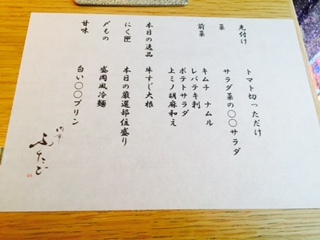 先付け
トマト切っただけ
菜
サラダ菜の〇〇サラダ
前菜
キムチ ナムル
レバテキ刺
ポテトサラダ
上ミノ胡麻和え
本日の逸品
牛すじ大根
にく匠
本日の厳選部位盛り
〆もの
盛岡風冷麺
甘味
白い〇〇プリン
ふたご